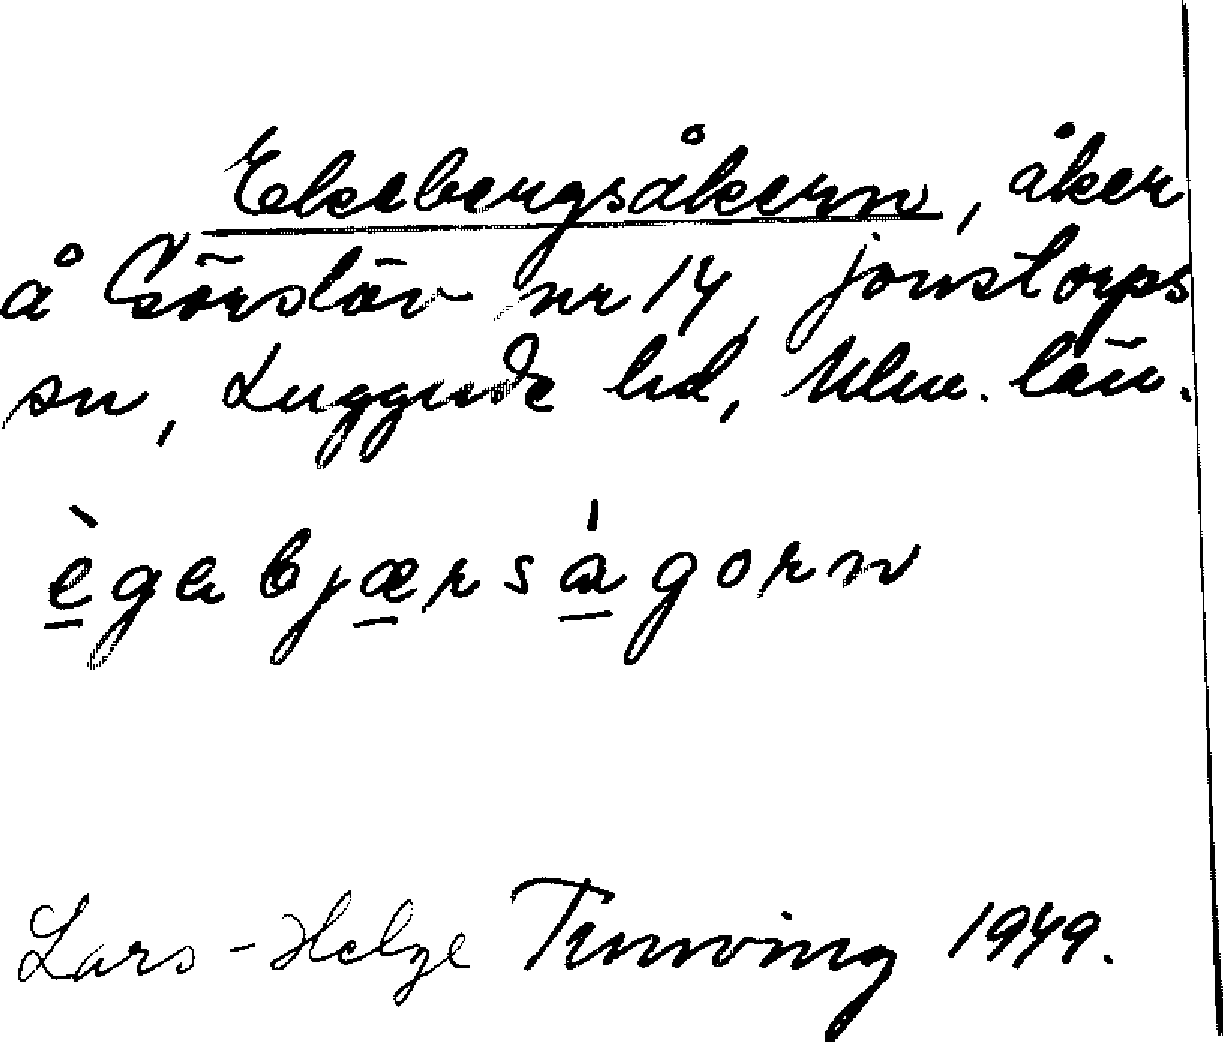 Ekebergsåkern, åker
å Görslöv nr 14, Jonstorps
sn, Luggude hd, Mlm. län.
ègabjærságorn
Lars-Helge Tunving 1949.